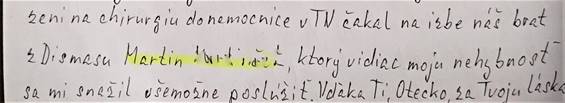 zení na chirurgiu do nemocnice v TN čakal na izbe náš brat
z Dismasu Martin, ktorý vidiac moju nehybnosť
sa mi snažil všemožne poslúžiť. Vďaka Ti, Otecko, za Tvoju láska